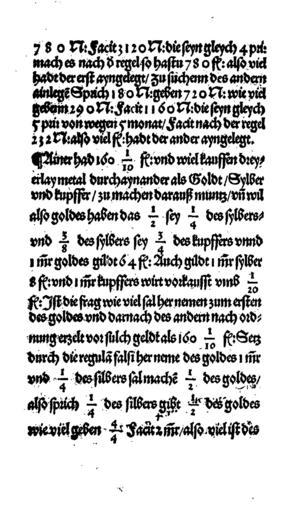 780 N: Facit 3120 N: die seyn gleych 4 pri:
mach es nach ð regel so hastu 780 fl: also viel
hadt der erst ayngelegt/ zu süchenn des andern
ainlegē Sprich 180 N: geben 720 N: wie viel
gebenn 290 N: Facit 1160 N: die seyn gleych
5 pri von wegen 5 monat/ Facit nach der regel
232 N: also viel fl: hadt der ander ayngelegt.
¶ Ainer had 160 1/10 fl: vnd wiel kauffen drey-
erlay metal durchaynander als Goldt/Sylber
vnd kupffer/ zu machen darauß muntz/ vñ wil
also goldes haben das 1/2 sey 1/4 des sylbers-
vnd 3/8 des sylbers sey 3/4 des kupffers vnnd
1 mr goldes gildt 64 fl: Auch gildt 1 mr sylber
8 fl: vnd 1 mr kupffers wirt vorkaufft vmb 1/20
fl: Ist die frag wie viel sal her nemen zum ersten
des goldes vnd darnach des andern nach ord-
nung erzelt vor sulch geldt als 160 1/10 fl: Setz
durch die regulā falsi her neme des goldes 1 mr
vnd 1/4 des silbers sal machē 1/2 des goldes/
also sprich 1/4 des silbers gibt 1/2 des goldes
wie viel geben 4/4 Facit 2 mr/ also viel ist des